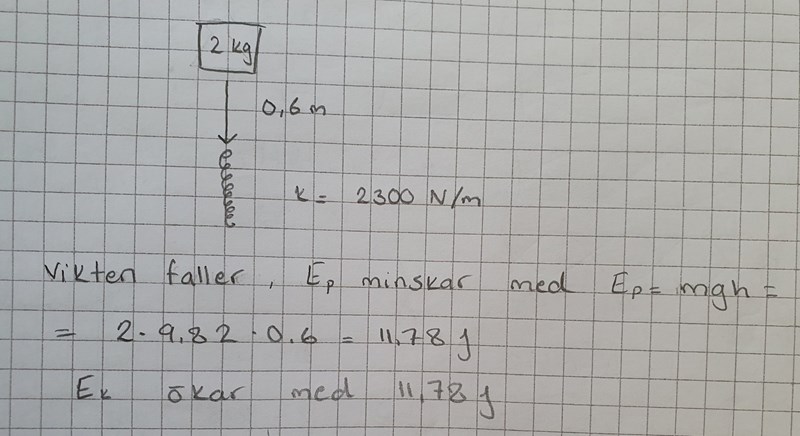 2 kg
0,6 m
k = 2300 N/m
Vikten faller, Ep minskar med Ep = mgh =
= 2 · 9,82 · 0.6 = 11,78 J
Ek ökar med 11,78 J